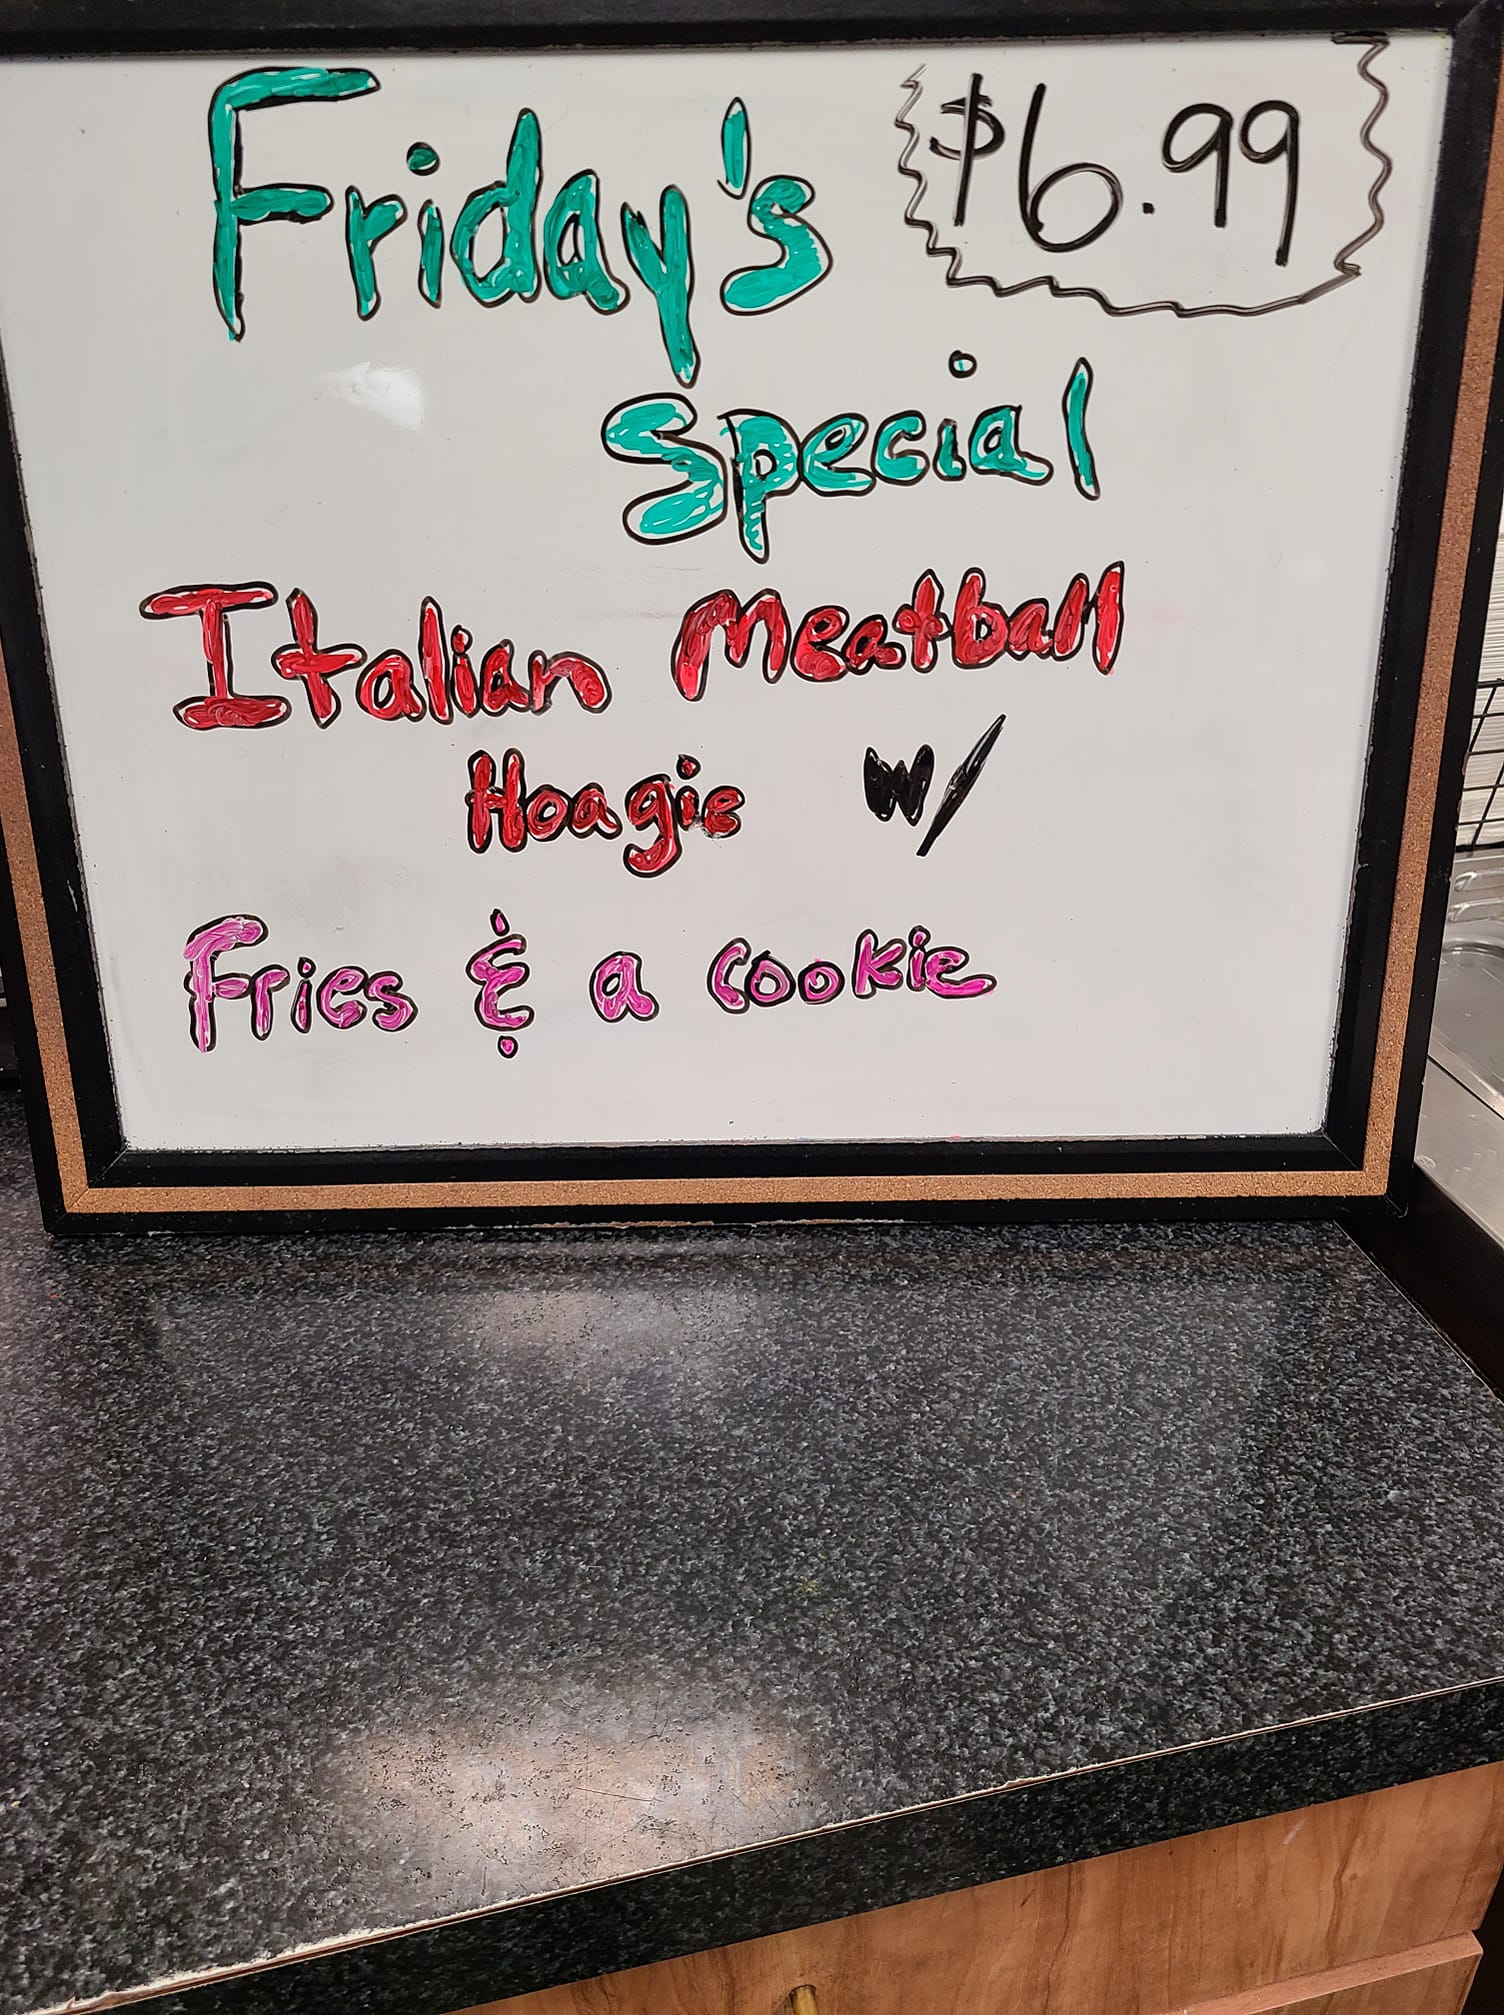 Friday's $6.99
Special
Italian Meatball
Hoagie w/
Fries & a cookie